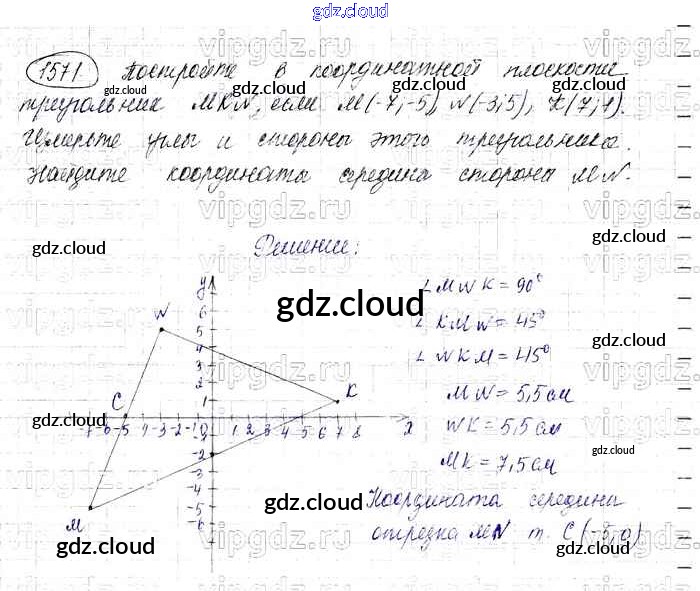 gdz.cloud
1571. Постройте в координатной плоскости
gdz.cloud
треугольник MKN, если M(-7;-5), N(-3;5), K(7;1).
Измерьте углы и стороны этого треугольника.
Найдите координаты середина стороны MN.
vipgdz.ru vipgdz.ru vipgdz.ru
gdz.cloud gdz.cloud
Решение:
y
6
5
4
3
2
1
N
K
C
M
-7 -6 -5 -4 -3 -2 -1 1 2 3 4 5 6 7 8 x
-2
-3
-4
-5
-6
gdz.cloud
∠MNK = 90°
∠KMN = 45°
∠NKM = 45°
MN = 5,5 см
NK = 5,5 см
MK = 7,5 см
gdz.cloud
gdz.cloud gdz.cloud
gdz.cloud
Координата середины
отрезка MN т. C(-5;0)
gdz.cloud gdz.cloud